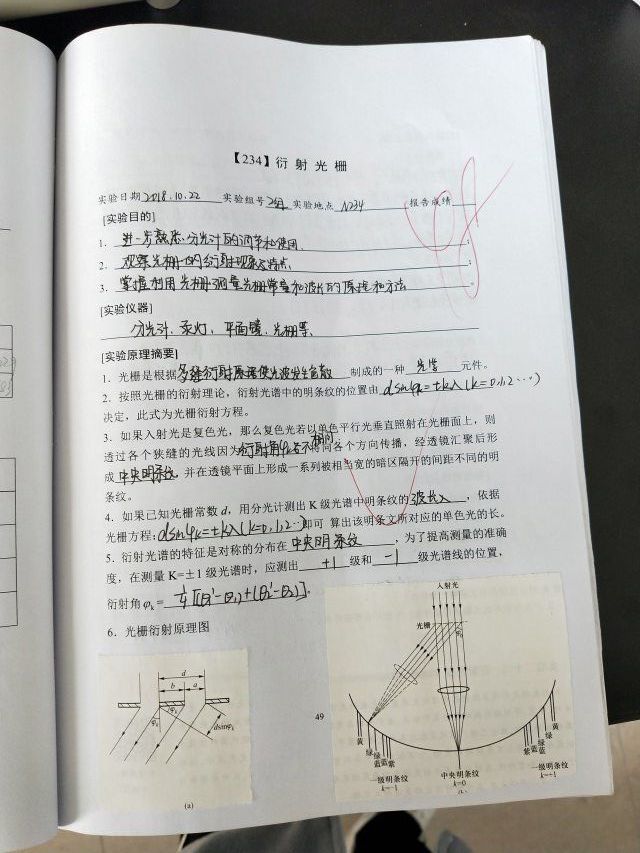 【234】衍射光栅
实验日期 2018.10.22 实验组号 2组 实验地点 N234 报告成绩
[实验目的]
1. 进一步熟悉分光计的调节和使用;
2. 观察光栅的衍射现象及特点;
3. 掌握利用光栅测量光栅常量和波长的原理和方法。
[实验仪器]
分光计、汞灯、平面镜、光栅等.
[实验原理摘要]
1. 光栅是根据多缝衍射原理使光波发生色散 制成的一种 光学 元件。
2. 按照光栅的衍射理论，衍射光谱中的明条纹的位置由 dsinφk=±kλ(k=0.1.2…)
决定，此式为光栅衍射方程。
3. 如果入射光是复色光，那么复色光若以单色平行光垂直照射在光栅面上，则
透过各个狭缝的光线因为衍射角φk各不相同将向各个方向传播，经透镜汇聚后形
成 中央明条纹，并在透镜平面上形成一系列被相当宽的暗区隔开的间距不同的明
条纹。
4. 如果已知光栅常数 d，用分光计测出 K 级光谱中明条纹的 波长λ ，依据
光栅方程: dsinφk=±kλ(k=0.1.2…)即可 算出该明条文所对应的单色光的长。
5. 衍射光谱的特征是对称的分布在 中央明条纹 ，为了提高测量的准确
度，在测量 K=±1 级光谱时，应测出 +1 级和 -1 级光谱线的位置，
衍射角φk= 1/4[(θ1'-θ1)+(θ2'-θ2)]。
6. 光栅衍射原理图
入射光
光栅
φk
d
b a
φk
φk
dsinφk
(a)
黄
绿
绿
蓝
蓝
紫
紫
蓝
蓝
绿
绿
黄
一级明条纹
k=-1
中央明条纹
k=0
一级明条纹
k=+1
49